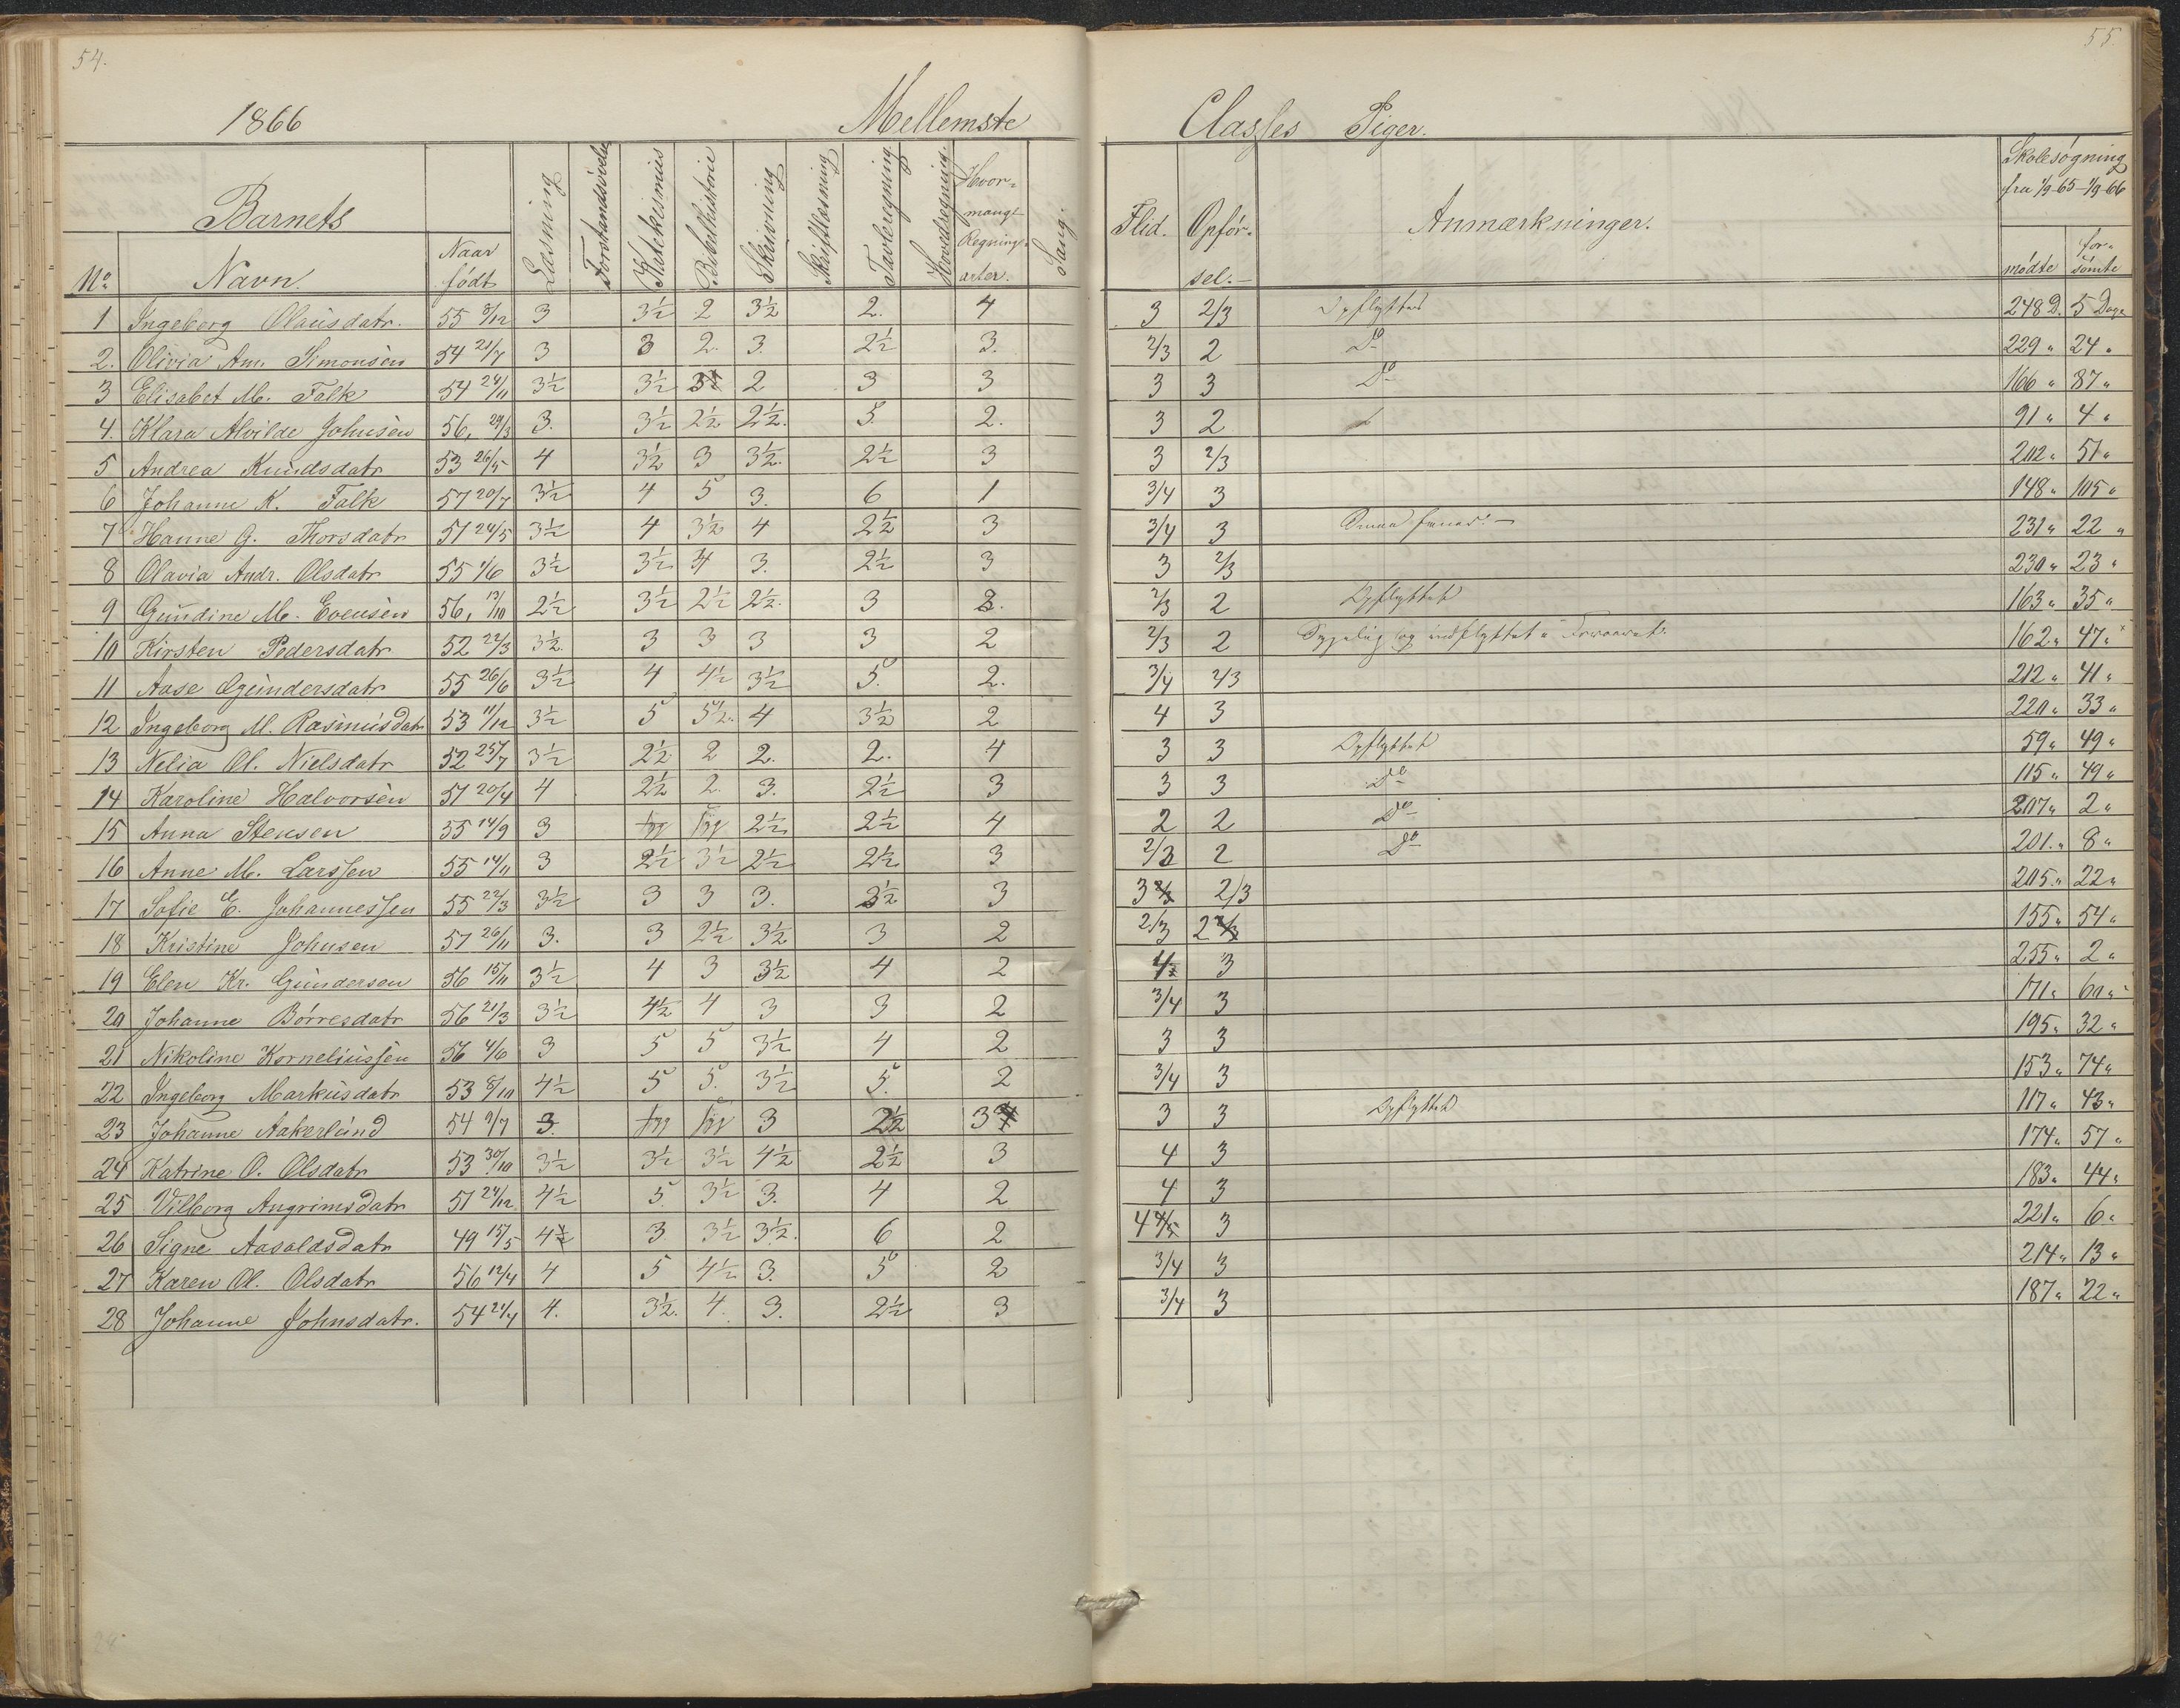 54.
55.
1866 Mellemste Classes Piger.
Barnets
No Navn. Naar født Læsning Forstandsøvelse Katekismus Bibelhistorie Skrivning Skriftlæsning Tavleregning Hovedregning. Hvormange Regningsarter. Sang. Flid. Opførsel. Anmærkninger. Skolesøgning fra 1/9 65 - 1/9 66 mødte forsømte
1 Ingeborg Olausdatr. 55 8/12 3 3½ 2 3½ 2. 4 3 2/3 Opflyttet 248 D. 5 Dage
2. Olivia Am. Simonsen 54 21/7 3 3 2. 3. 2½ 3. 2/3 2 Do 229 " 24 "
3 Elisabet M. Falk 54 24/11 3½ 3½ 2 3 3 3 3 Do 166 " 87 "
4. Klara Alvilde Johnsen 56, 29/3 3. 3½ 2½ 2½. 5. 2. 3 2 91 " 4 "
5 Andrea Knudsdatr 53 26/5 4 3½ 3 3½. 2½ 3 3 2/3 202 " 51 "
6 Johanne K. Falk 57 20/7 3½ 4 5 3. 6 1 3/4 3 148 " 105 "
7 Hanne G. Thorsdatr 51 24/5 3½ 4 3½ 4 2½ 3 3/4 3 231 " 22 "
8 Olavia Andr. Olsdatr 55 1/6 3½ 3½ 4 3. 2½ 3 3 2/3 230 " 23 "
9 Gundine M. Evensen 56, 13/10 2½ 3½ 2½ 2½. 3 3. 2/3 2 Opflyttet 163 " 35 "
10 Kirsten Pedersdatr 52 22/3 3½. 3 3 3 3 2 2/3 2 Sygelig og indflyttet 162 " 47 "
11 Aase Gundersdatr 55 26/6 3½ 4 4½ 3½ 5. 2. 3/4 2/3 212 " 41 "
12 Ingeborg M. Rasmusdatr 53 11/12 3½ 5 5½. 4 3½ 2 4 3 220 " 33 "
13 Nelia Ol. Nielsdatr 52 25/7 3½ 2½ 2 2. 2. 4 3 3 Opflyttet 59 " 49 "
14 Karoline Halvorsen 51 20/4 4 2½ 2. 3. 2½ 3 3 3 Do 115 " 49 "
15 Anna Stensen 55 14/9 3 2½ 2½ 4 2 2 Do 207 " 2 "
16 Anne M. Larssen 55 14/11 3 2½ 3½ 2½ 2½ 3 2/3 2 Do 201. " 8 "
17 Sofie E. Johannessen 55 22/3 3½ 3 3 3. 3½ 3 3 2/3 205 " 22 "
18 Kristine Johnsen 57 26/11 3. 3 2½ 3½ 3 2 2/3 2 155 " 54 "
19 Elen Kr. Gundersen 56 15/11 3½ 4 3 3½ 4 2 3 255 " 2 "
20 Johanne Börresdatr 56 21/3 3½ 4½ 4 3 3 2 3/4 3 171 " 60 "
21 Nikoline Korneliussen 56 4/6 3 5 5 3½ 4 2 3 3 195 " 32 "
22 Ingeborg Markusdatr 53 8/10 4½ 5 5. 3½ 5. 2 3/4 3 153 " 74 "
23 Johanne Aakerlund 54 9/7 3. 3 2½ 3 3 3 Opflyttet 117 " 43 "
24 Katrine O. Olsdatr 53 30/10 3½ 3½ 3½ 4½ 2½ 3 4 3 174 " 57 "
25 Vilborg Angrimsdatr 51 24/12 4½ 5. 3½ 3. 4 2 4 3 183 " 44 "
26 Signe Aasoldsdatr 49 15/5 4 3 3½ 3½. 6 2 4 3 221 " 6 "
27 Karen Ol. Olsdatr 56 12/4 4 5 4½ 3. 5 2 3/4 3 214 " 13 "
28 Johanne Johnsdatr. 54 21/4 4. 3½. 4. 3. 2½ 3 3/4 3 187 " 22 "
28